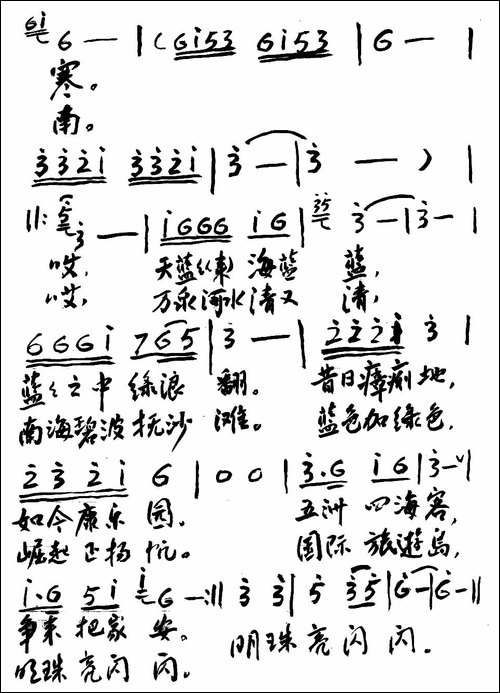 6i 6 — | ( 6i53 6i53 | 6 — |
寒。
南。
3321 3321 | 3 — | 3 — ) |
||: 5 3 — | i666 i6 | 35 3 — | 3 — |
哎, 天蓝 海蓝 蓝,
哎, 万泉河水清又 清,
666i 765 | 3 — | 222i 3 |
蓝 中 绿浪 翻。 昔日 地,
南海碧波抚沙 滩。 蓝色加绿色,
2 3 2 i 6 | 0 0 | 3.6 i6 | 3 — |
如今康乐 园。 五洲 四海客,
崛起 正扬 帆。 国际 旅遊岛,
i.6 5i i 6 — :|| 3 3 | 5 35 | 6 — | 6 — ||
争来 把家 安。 明珠 亮闪 闪。
明珠 亮闪 闪。